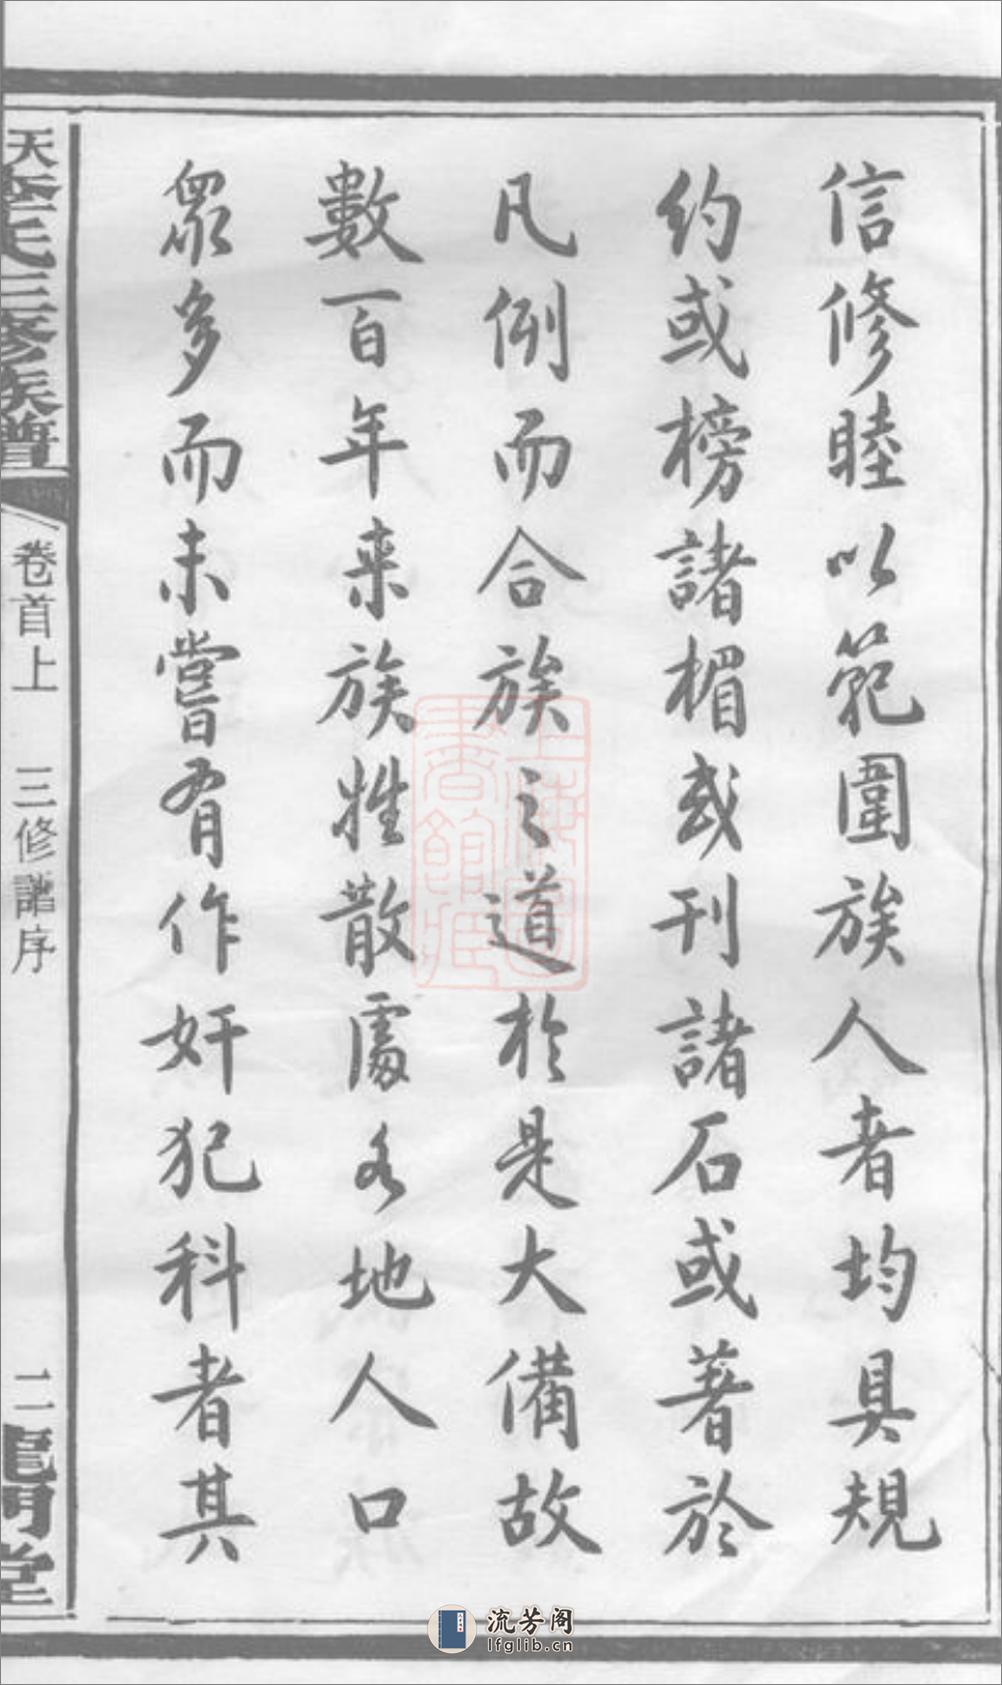 信修睦以範圍族人者均具規
約或榜諸楣或刊諸石或著於
凡例而合族之道於是大備故
數百年来族牲散處各地人口
眾多而未嘗有作奸犯科者其
氏三修族譜
卷首上 三修譜序
二
龍門堂
上海圖書館藏
流芳阁
lfglib.cn